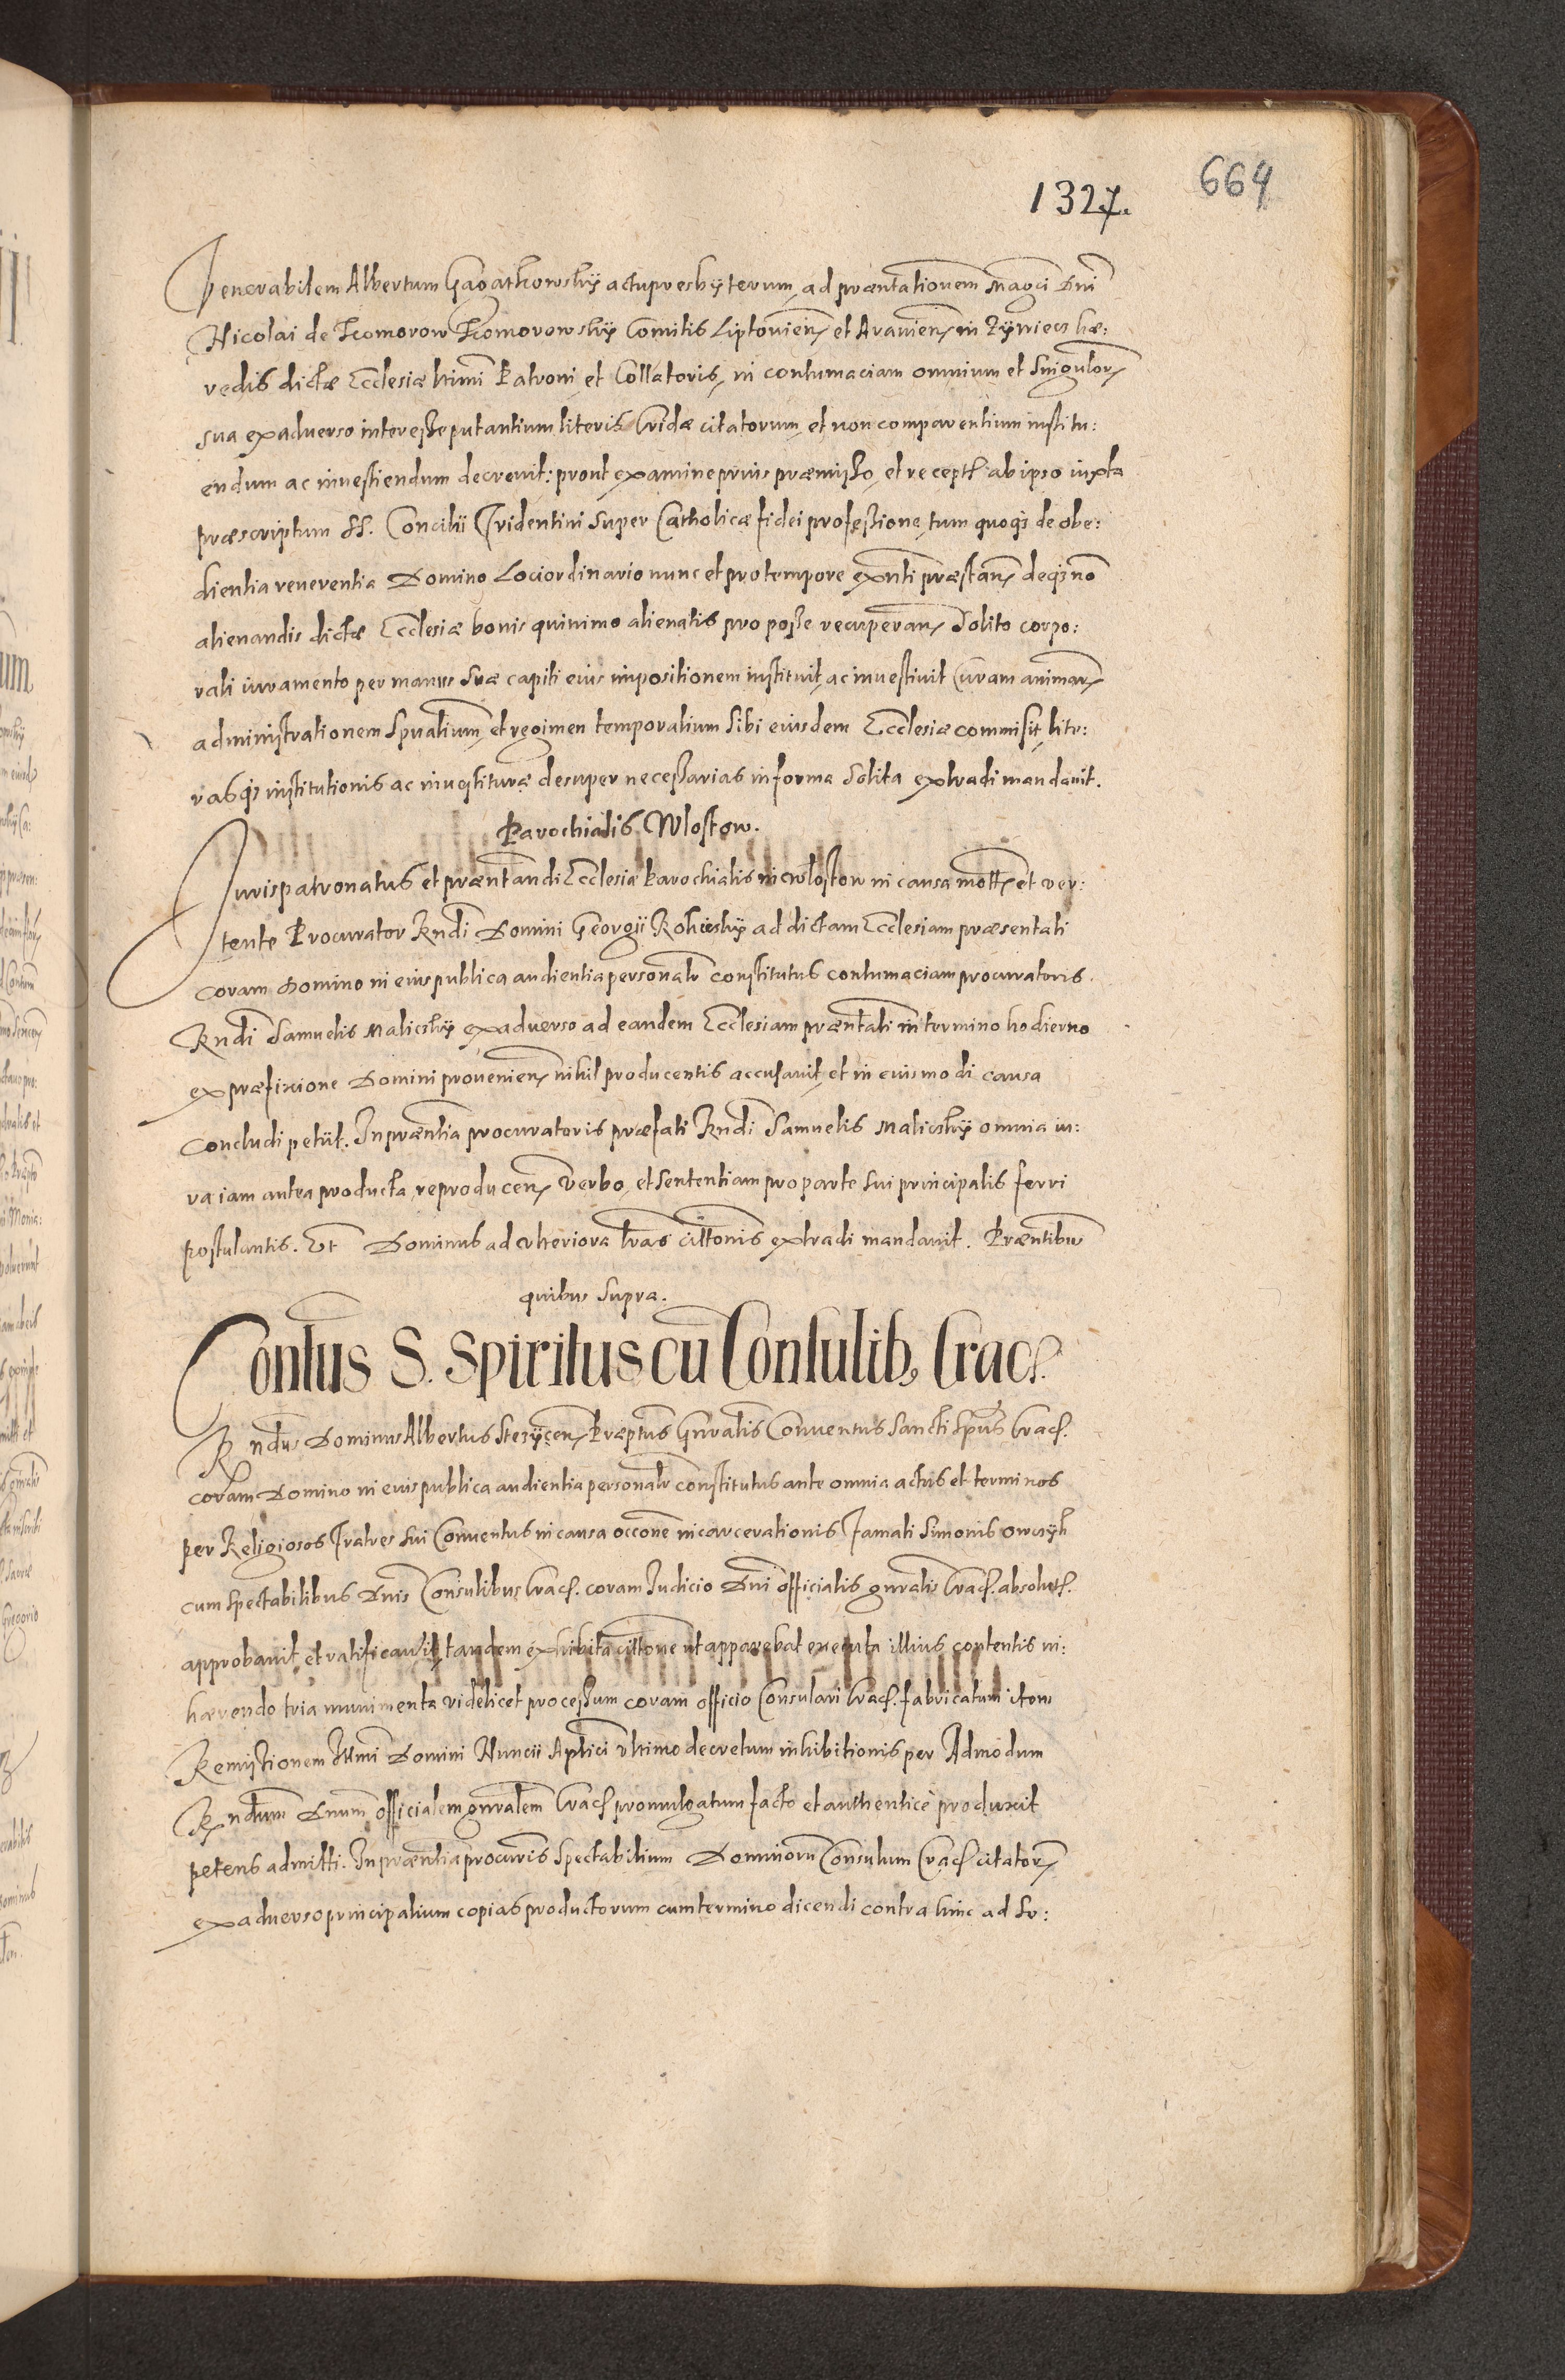 664
1327.
Venerabilem Albertum Gagatkowskÿ actu presbÿterum, ad præntationem Magci Dni
Nicolai de Komorow Komorowskÿ Comitis Liptovien et Aravien in Zÿwiecz hæ:
redis dictæ Ecclesiæ ltimi Patroni et Collatoris, in contumaciam omnium et Singulor
sua ex adverso interesse putantium literis Cridæ citatorum, et non comparentium institu:
endum ac investiendum decrevit: prout examine prius præmisso, et recept ab ipso iuxta
præscriptum SS. Concilii Tridentini super Catholicæ fidei professione, tum quoqz de obe:
dientia reverentia Domino Loci ordinario nunc et pro tempore exnti præstan deqz no
alienandis dictæ Ecclesiæ bonis quinimo alienatis pro posse recuperan Solito corpo:
rali iuramento per manus suæ capiti eius impositionem instituit, ac investivit Curam animar
administrationem Spualium, et regimen temporalium sibi eiusdem Ecclesiæ commisit, lite:
rasqz institutionis ac investituræ desuper necessarias in forma Solita extradi mandavit.
Parochialis Wlostow.
Juris patronatus et præntandi Ecclesiæ Parochialis in Wlostow in causa mott et ver:
tente Procurator Rndi Domini Georgii ad dictam Ecclesiam præsentati
coram Domino in eius publica audientia personalr constitutus contumaciam procuratoris
Rndi Samuelis Malicskÿ ex adverso ad eandem Ecclesiam præntati in termino hodierno
ex præfixione Domini provenien nihil producentis accusavit, et in eiusmodi causa
concludi petiit. In præntia procuratoris præfati Rndi Samuelis Malicskÿ omnia iu:
ra iam antea producta, reproducen Verbo, et sententiam pro parte sui principalis ferri
postulantis. Et Dominus ad ulteriora lras cittonis extradi mandavit. Præntibus
quibus supra.
Contus S. Spiritus cu Consulib, Crac.
Rndus Dominus Albertus Stezÿcen Præptus Gnralis Conventus Sancti Spus Crac.
coram Domino in eius publica audientia personalr constitutus ante omnia actus et terminos
per Religiosos Fratres sui Conventus in causa occone incarcerationis Famati Simonis
cum spectabilibus Dnis Consulibus Crac. coram Judicio Dni officialis gnralis Crac. absolut.
approbavit et ratificavit, tandem exhibita cittone ut apparebat executa illius contentis in:
hærendo tria munimenta videlicet processum coram officio Consulari Crac. fabricatum item
Remissionem Illmi Domini Nuncii Aplici ultimo decretum inhibitionis per Admodum
Rndum Dnum officialem gnralem Crac promulgatum facto et authentice produxit
petens admitti. In præntia procuris Spectabilium Dominoru Consulum Crac citator
ex adverso principalium copias productorum cum termino dicendi contra hinc ad fe: